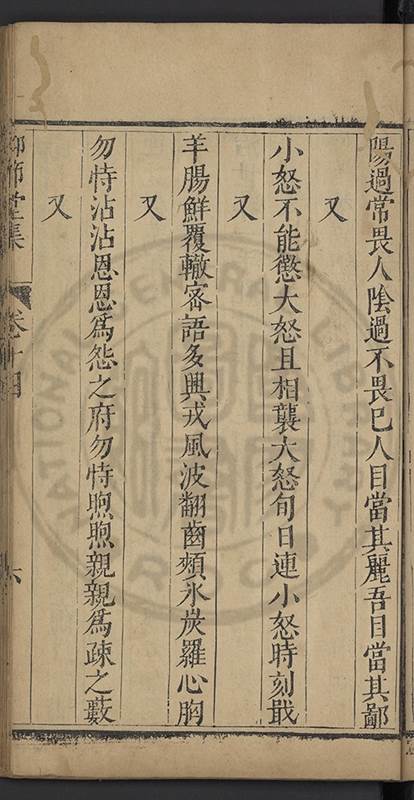 陽過常畏人陰過不畏已人目當其麗吾目當其鄙
又
小怒不能懲大怒且相襲大怒旬日連小怒時刻戢
又
羊腸鮮覆轍密語多興戎風波翻齒頰氷炭羅心胸
又
勿恃沾沾恩恩爲怨之府勿恃煦煦親親爲疎之藪
又
節堂集 卷十四 六